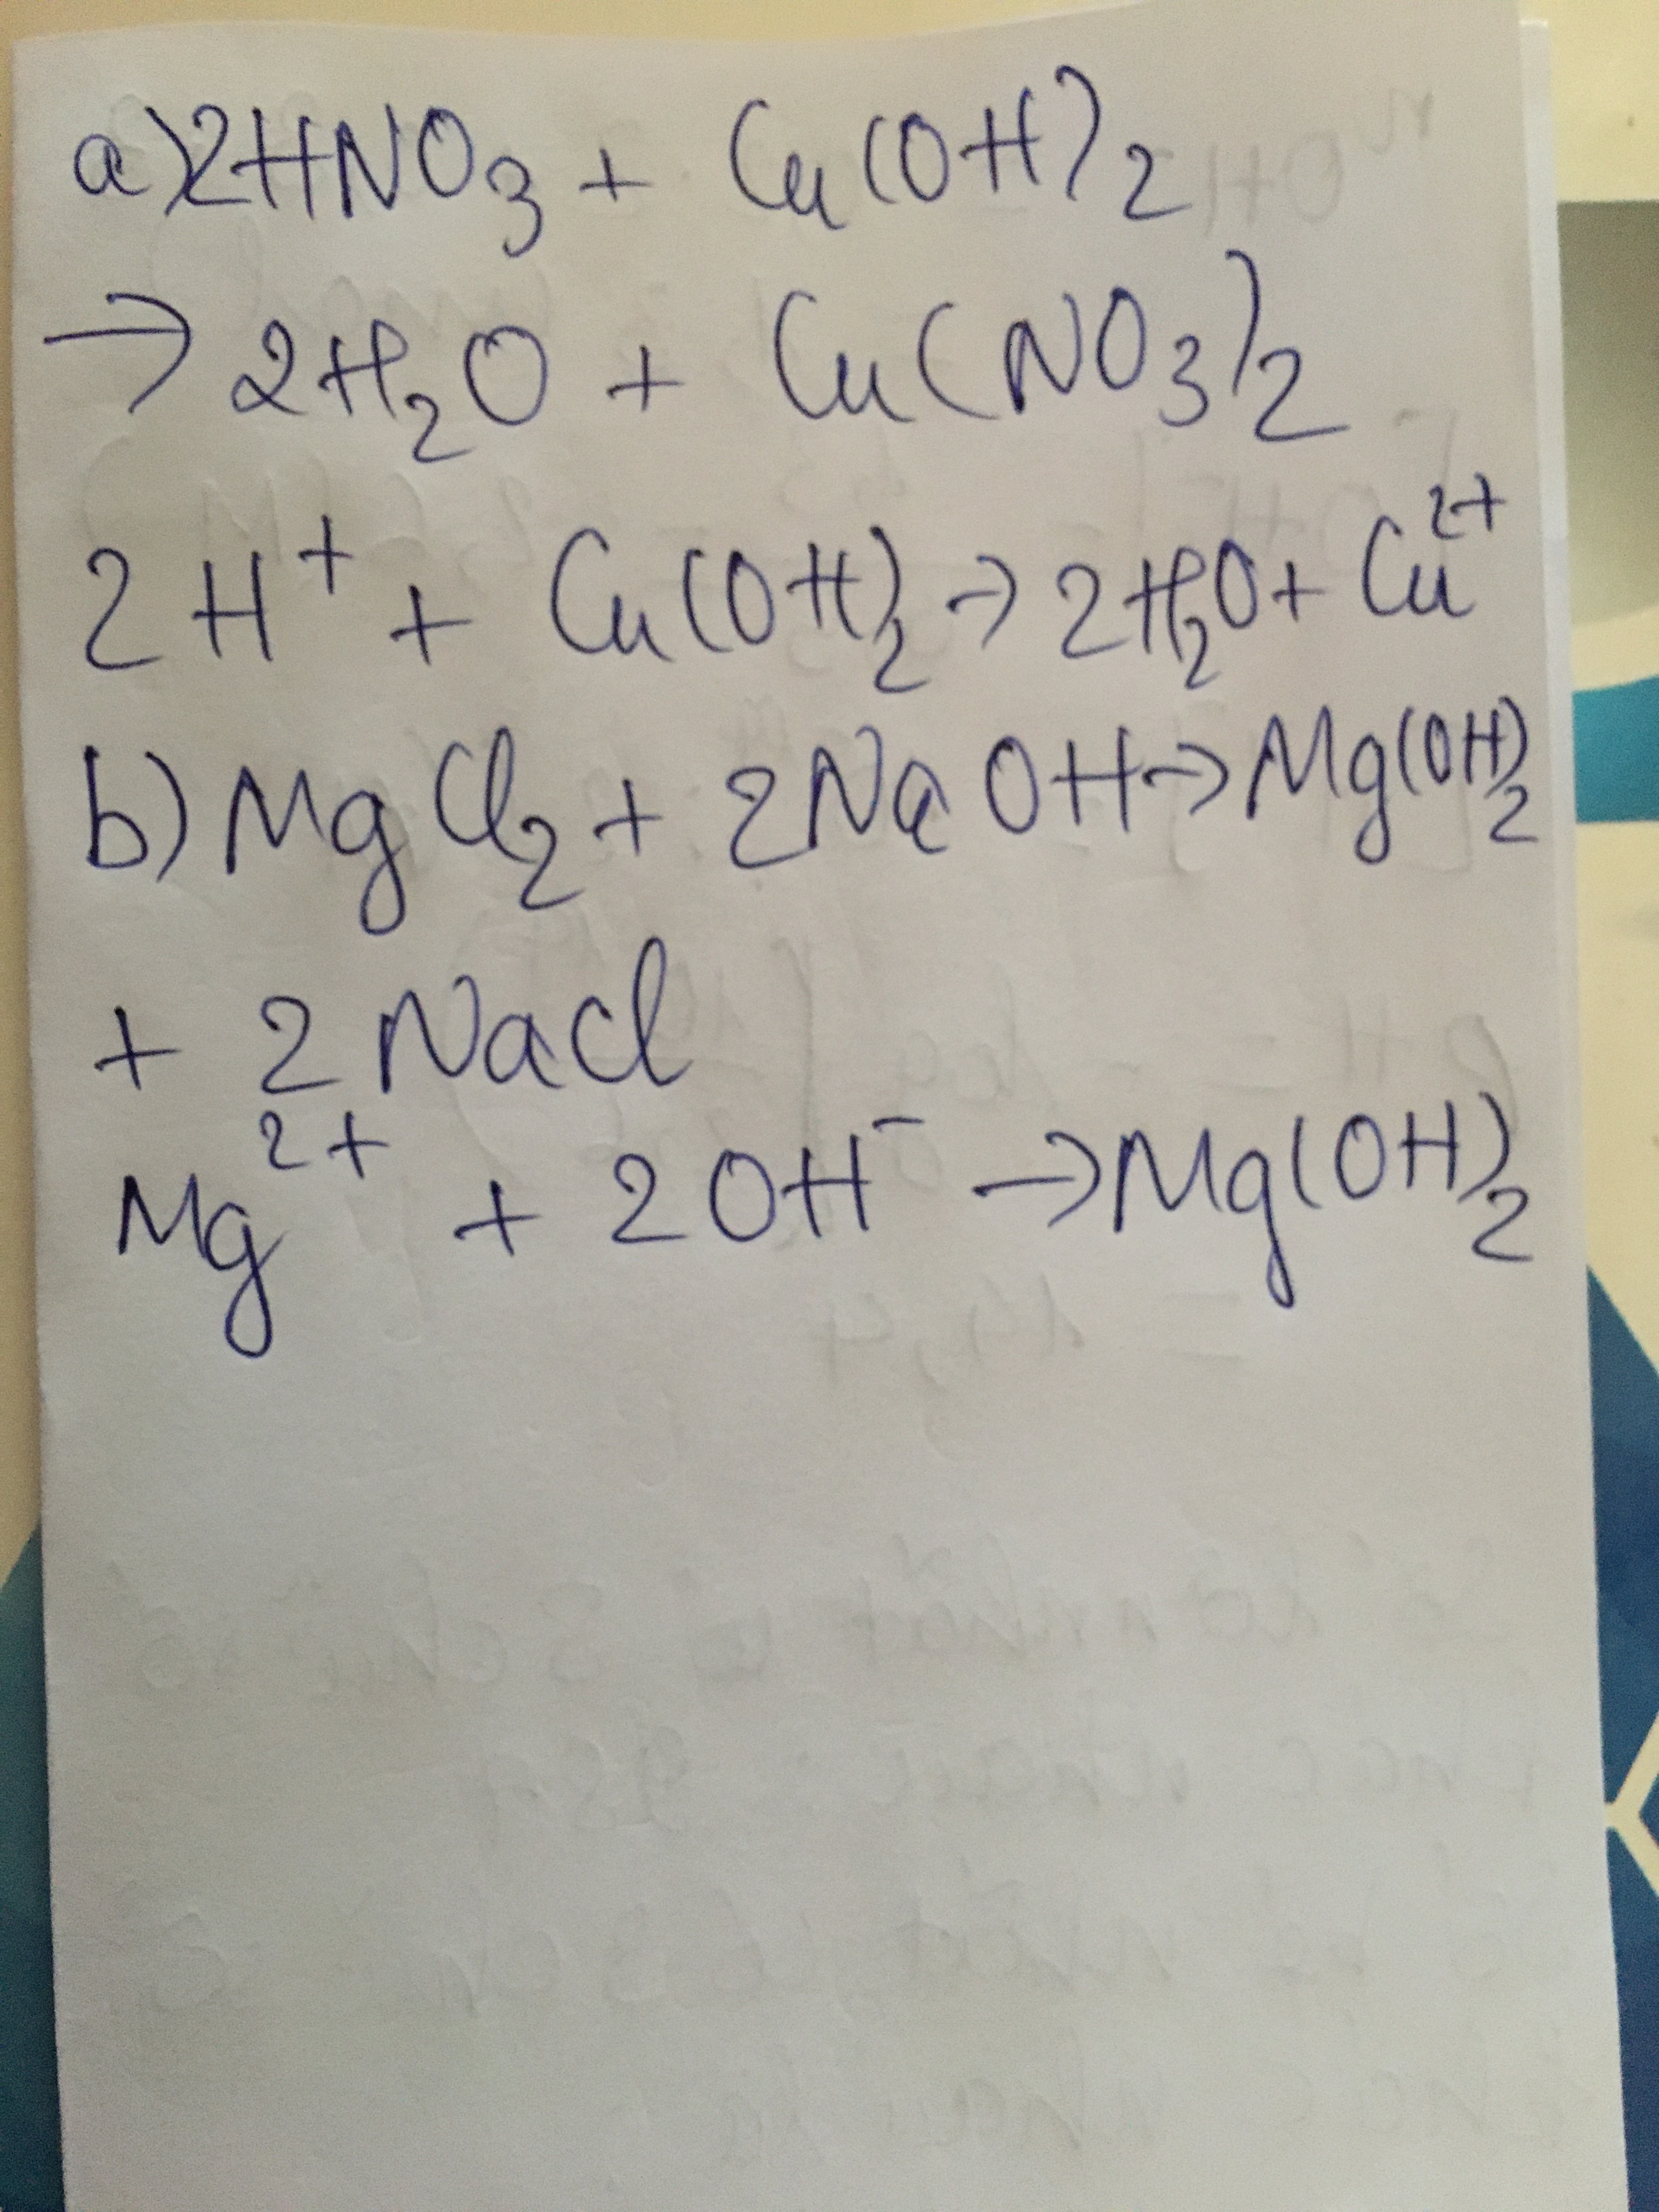 a) 2HNO₃ + Cu(OH)₂
→ 2H₂O + Cu(NO₃)₂
2H⁺ + Cu(OH)₂ → 2H₂O + Cu²⁺
b) MgCl₂ + 2NaOH → Mg(OH)₂
+ 2NaCl
Mg²⁺ + 2OH⁻ → Mg(OH)₂